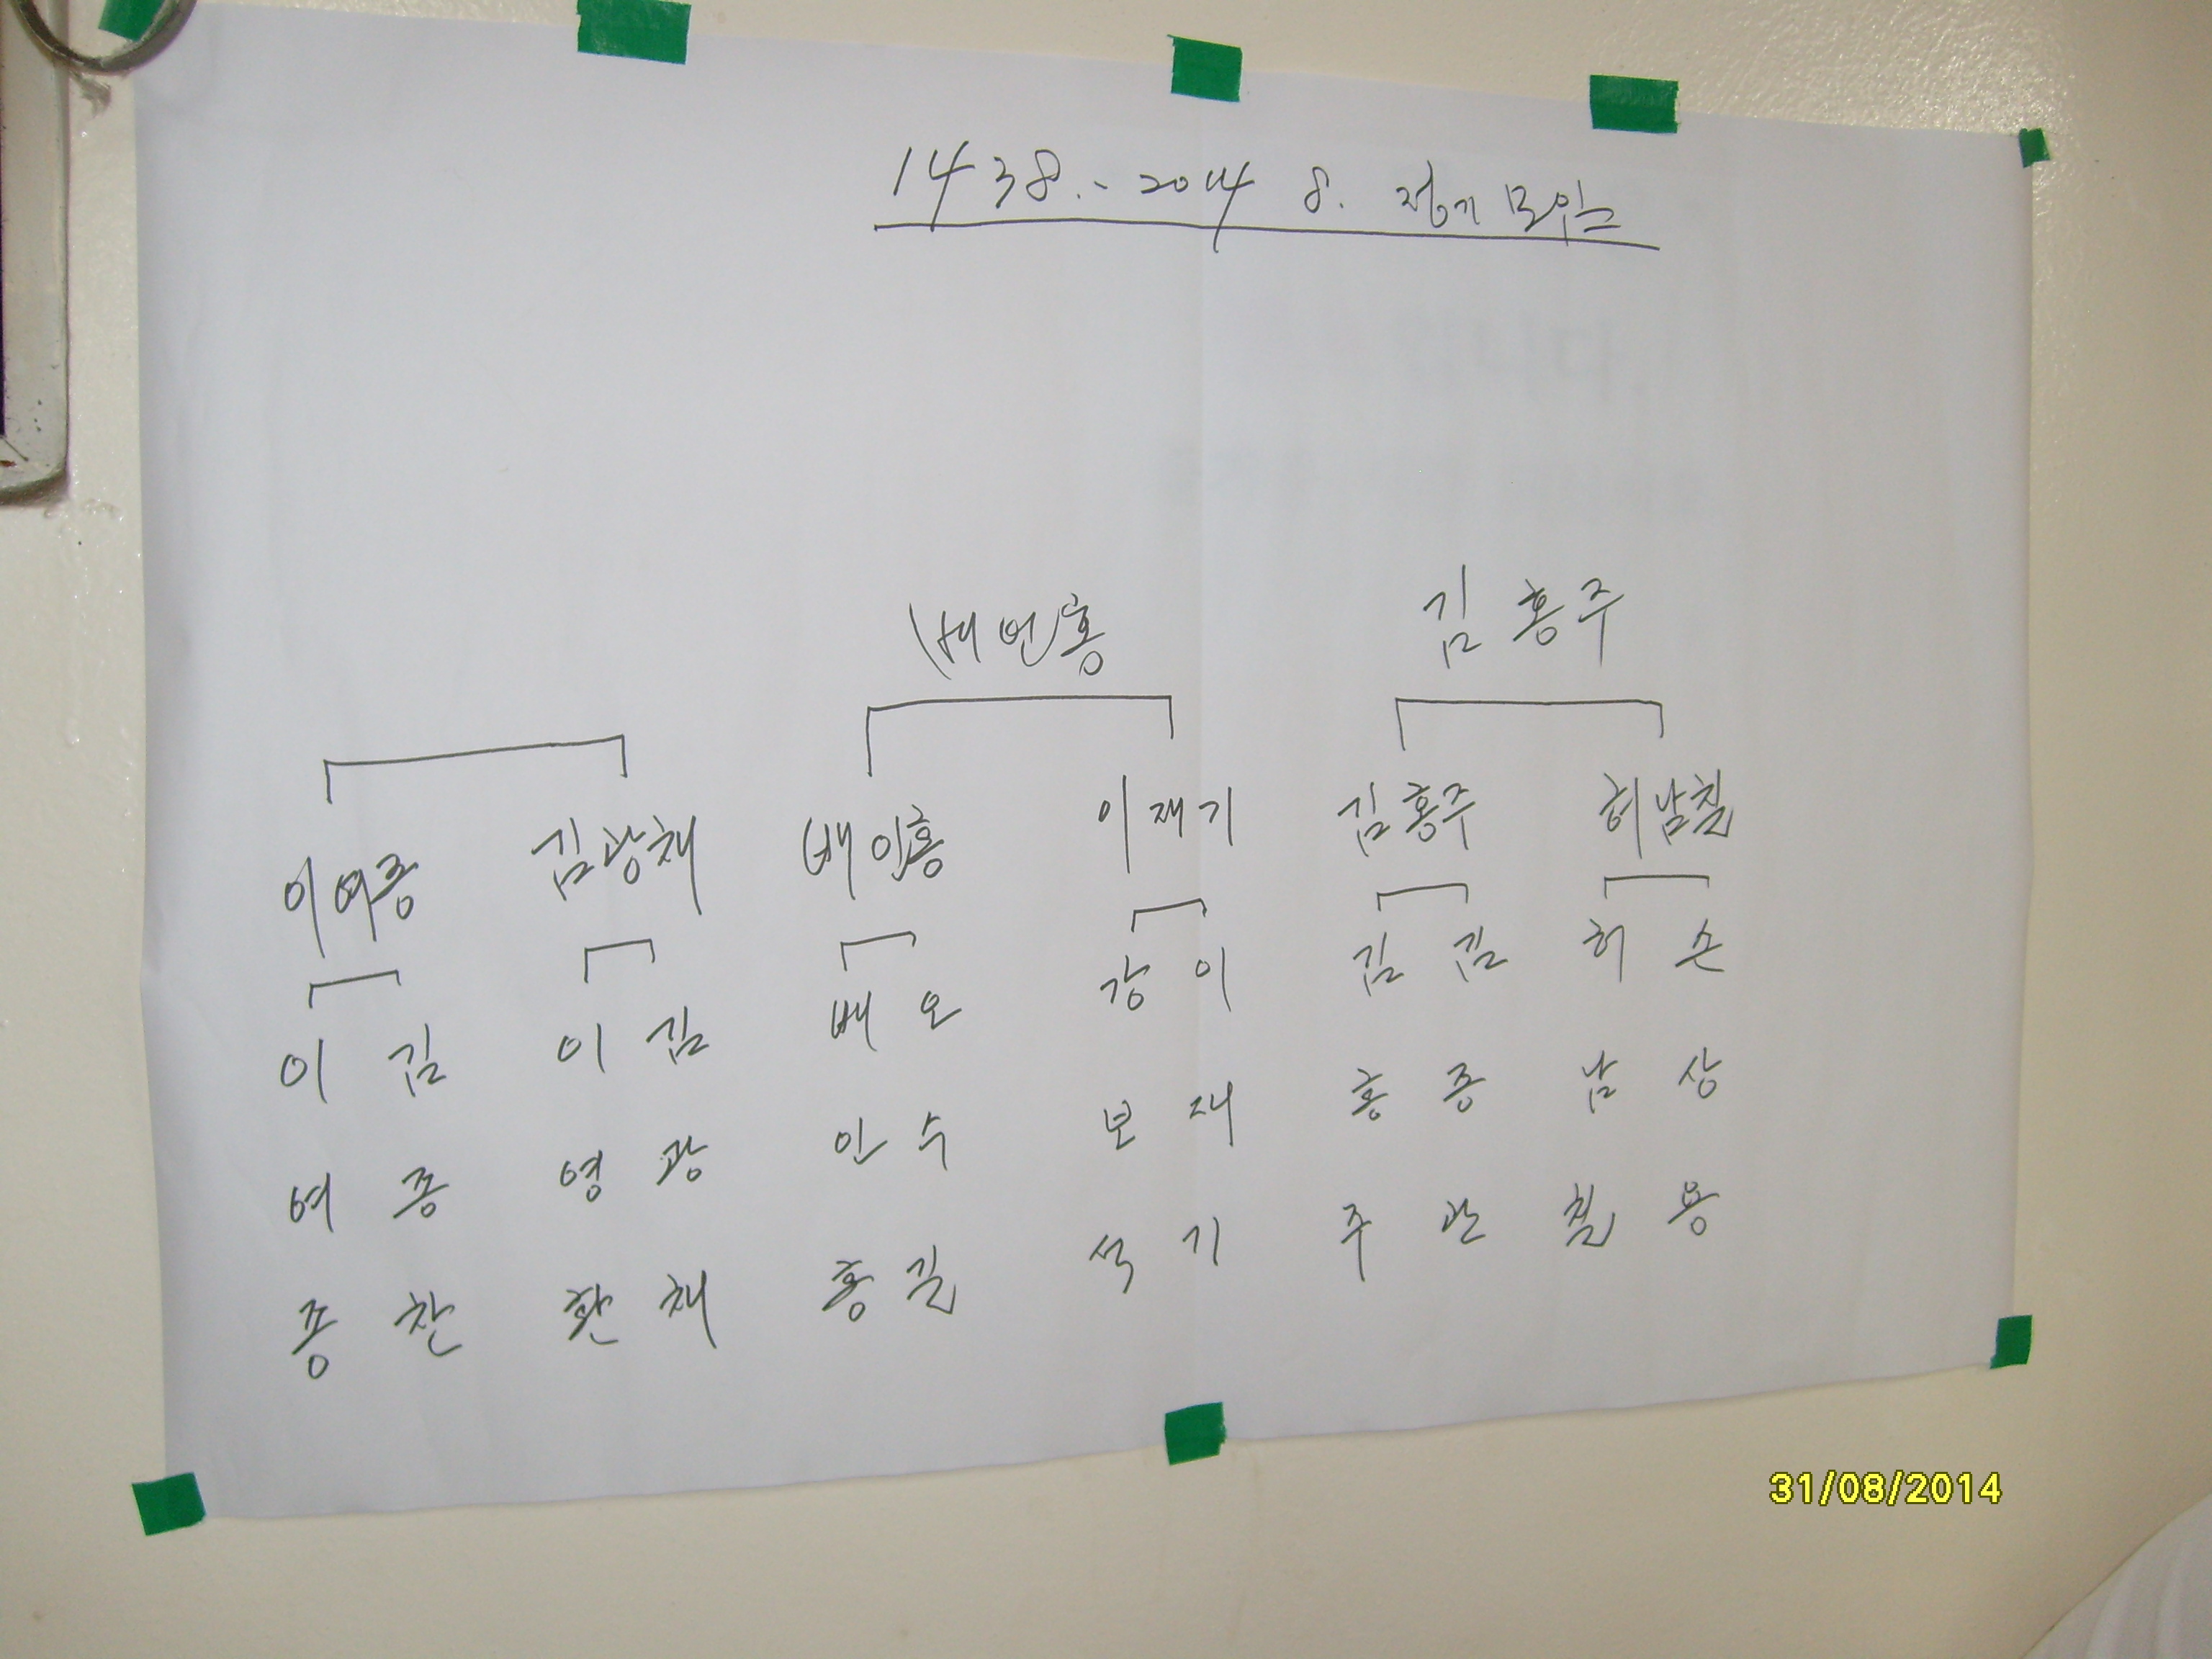 1438.. 2014 8. 정기모임
배인홍 김홍주
이여종 김광채 배인홍 이재기 김홍주 허남칠
이 김 이 김 배 오 강 이 김 김 허 손
여 종 영 광 인 수 보 재 홍 종 남 상
종 찬 환 채 홍 길 석 기 주 관 칠 용
31/08/2014